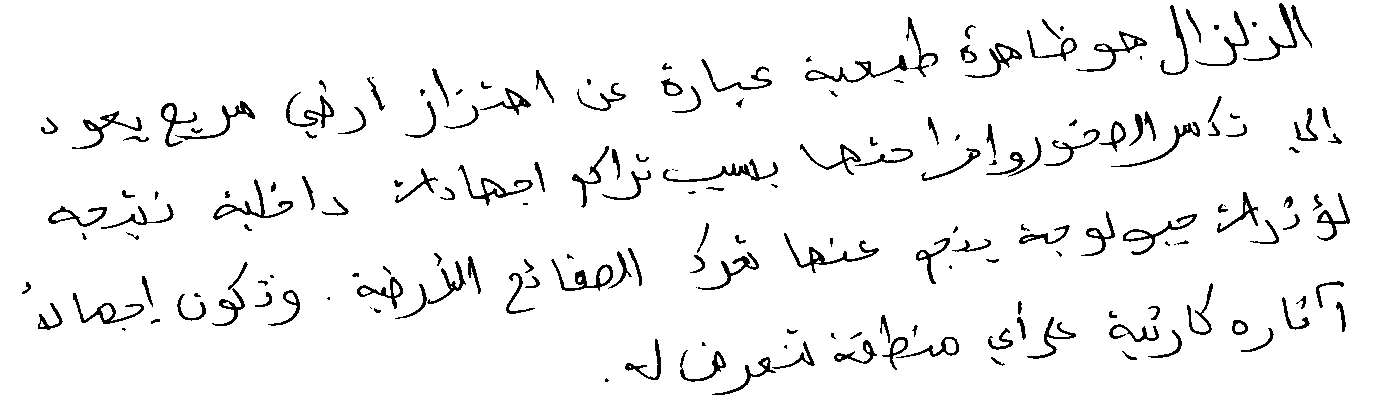 الزلزال هو ظاهرة طبيعية عبارة عن اهتزاز أرضي سريع يعود
إلى تكسر الصخور وإزاحتها بسبب تراكم اجهادات داخلية نتيجه
لمؤثرات جيولوجية ينجم عنها تحرك الصفائح الأرضية. وتكون إجمالاً
آثاره كارثية على أي منطقة تتعرض له.